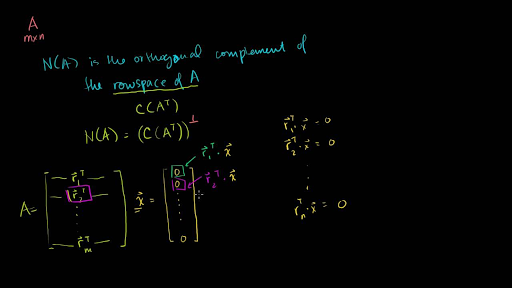 A
m×n
N(A) is the orthogonal complement of
the rowspace of A
C(Aᵀ)
N(A) = (C(Aᵀ))^⊥
r⃗₁ᵀ · x⃗ = 0
r⃗₂ᵀ · x⃗ = 0
⋮
r⃗ₙᵀ · x⃗ = 0
r⃗₁ᵀ · x⃗
r⃗₂ᵀ · x⃗
A = [ r⃗₁ᵀ r⃗₂ᵀ ⋮ r⃗ₘᵀ ] x⃗ = [ 0 0 ⋮ 0 ]